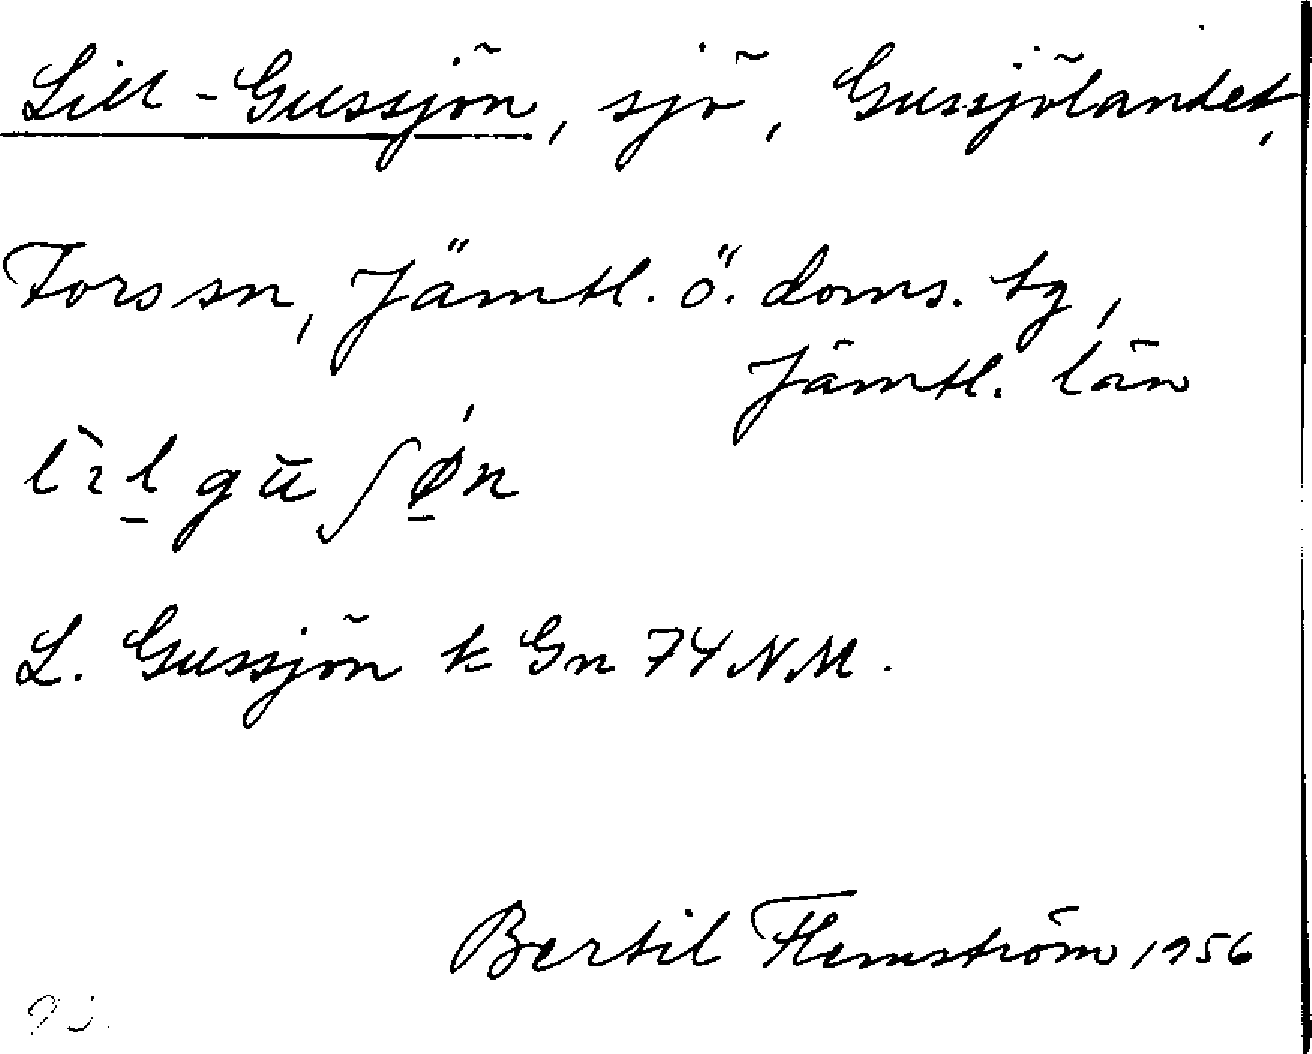 Lill-Gussjön, sjö, Gussjölandet,
Fors sn, Jämtl. ö. doms. tg,
Jämtl. län
lìl gū ʃǿn
L. Gussjön k Gn 74 NM.
Bertil Flemström 1956